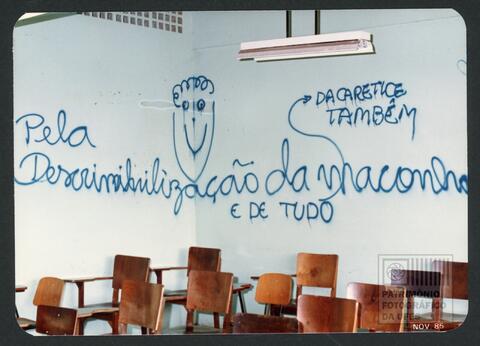 Pela
Descriminilização da maconha
DA CARETICE
TAMBÊM
E DE TUDO
PATRIMÔNIO
FOTOGRÁFICO
DA UFES
NOV 85